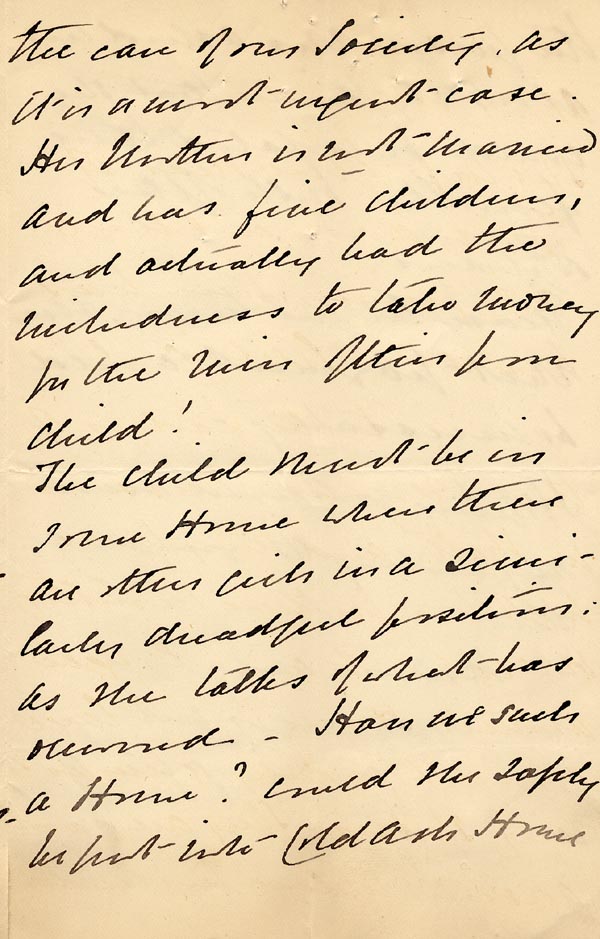 the care of our Society, as
it is a most urgent case.
Her Mother is not married
and has five children,
and actually had the
wickedness to take money
for the ruin of this poor
child!
The child must be in
some Home where there
are other girls in a simi-
larly dreadful position:
as she talks of what has
occurred - Have we such
a Home? Could she safely
be put into Cold Ash Home